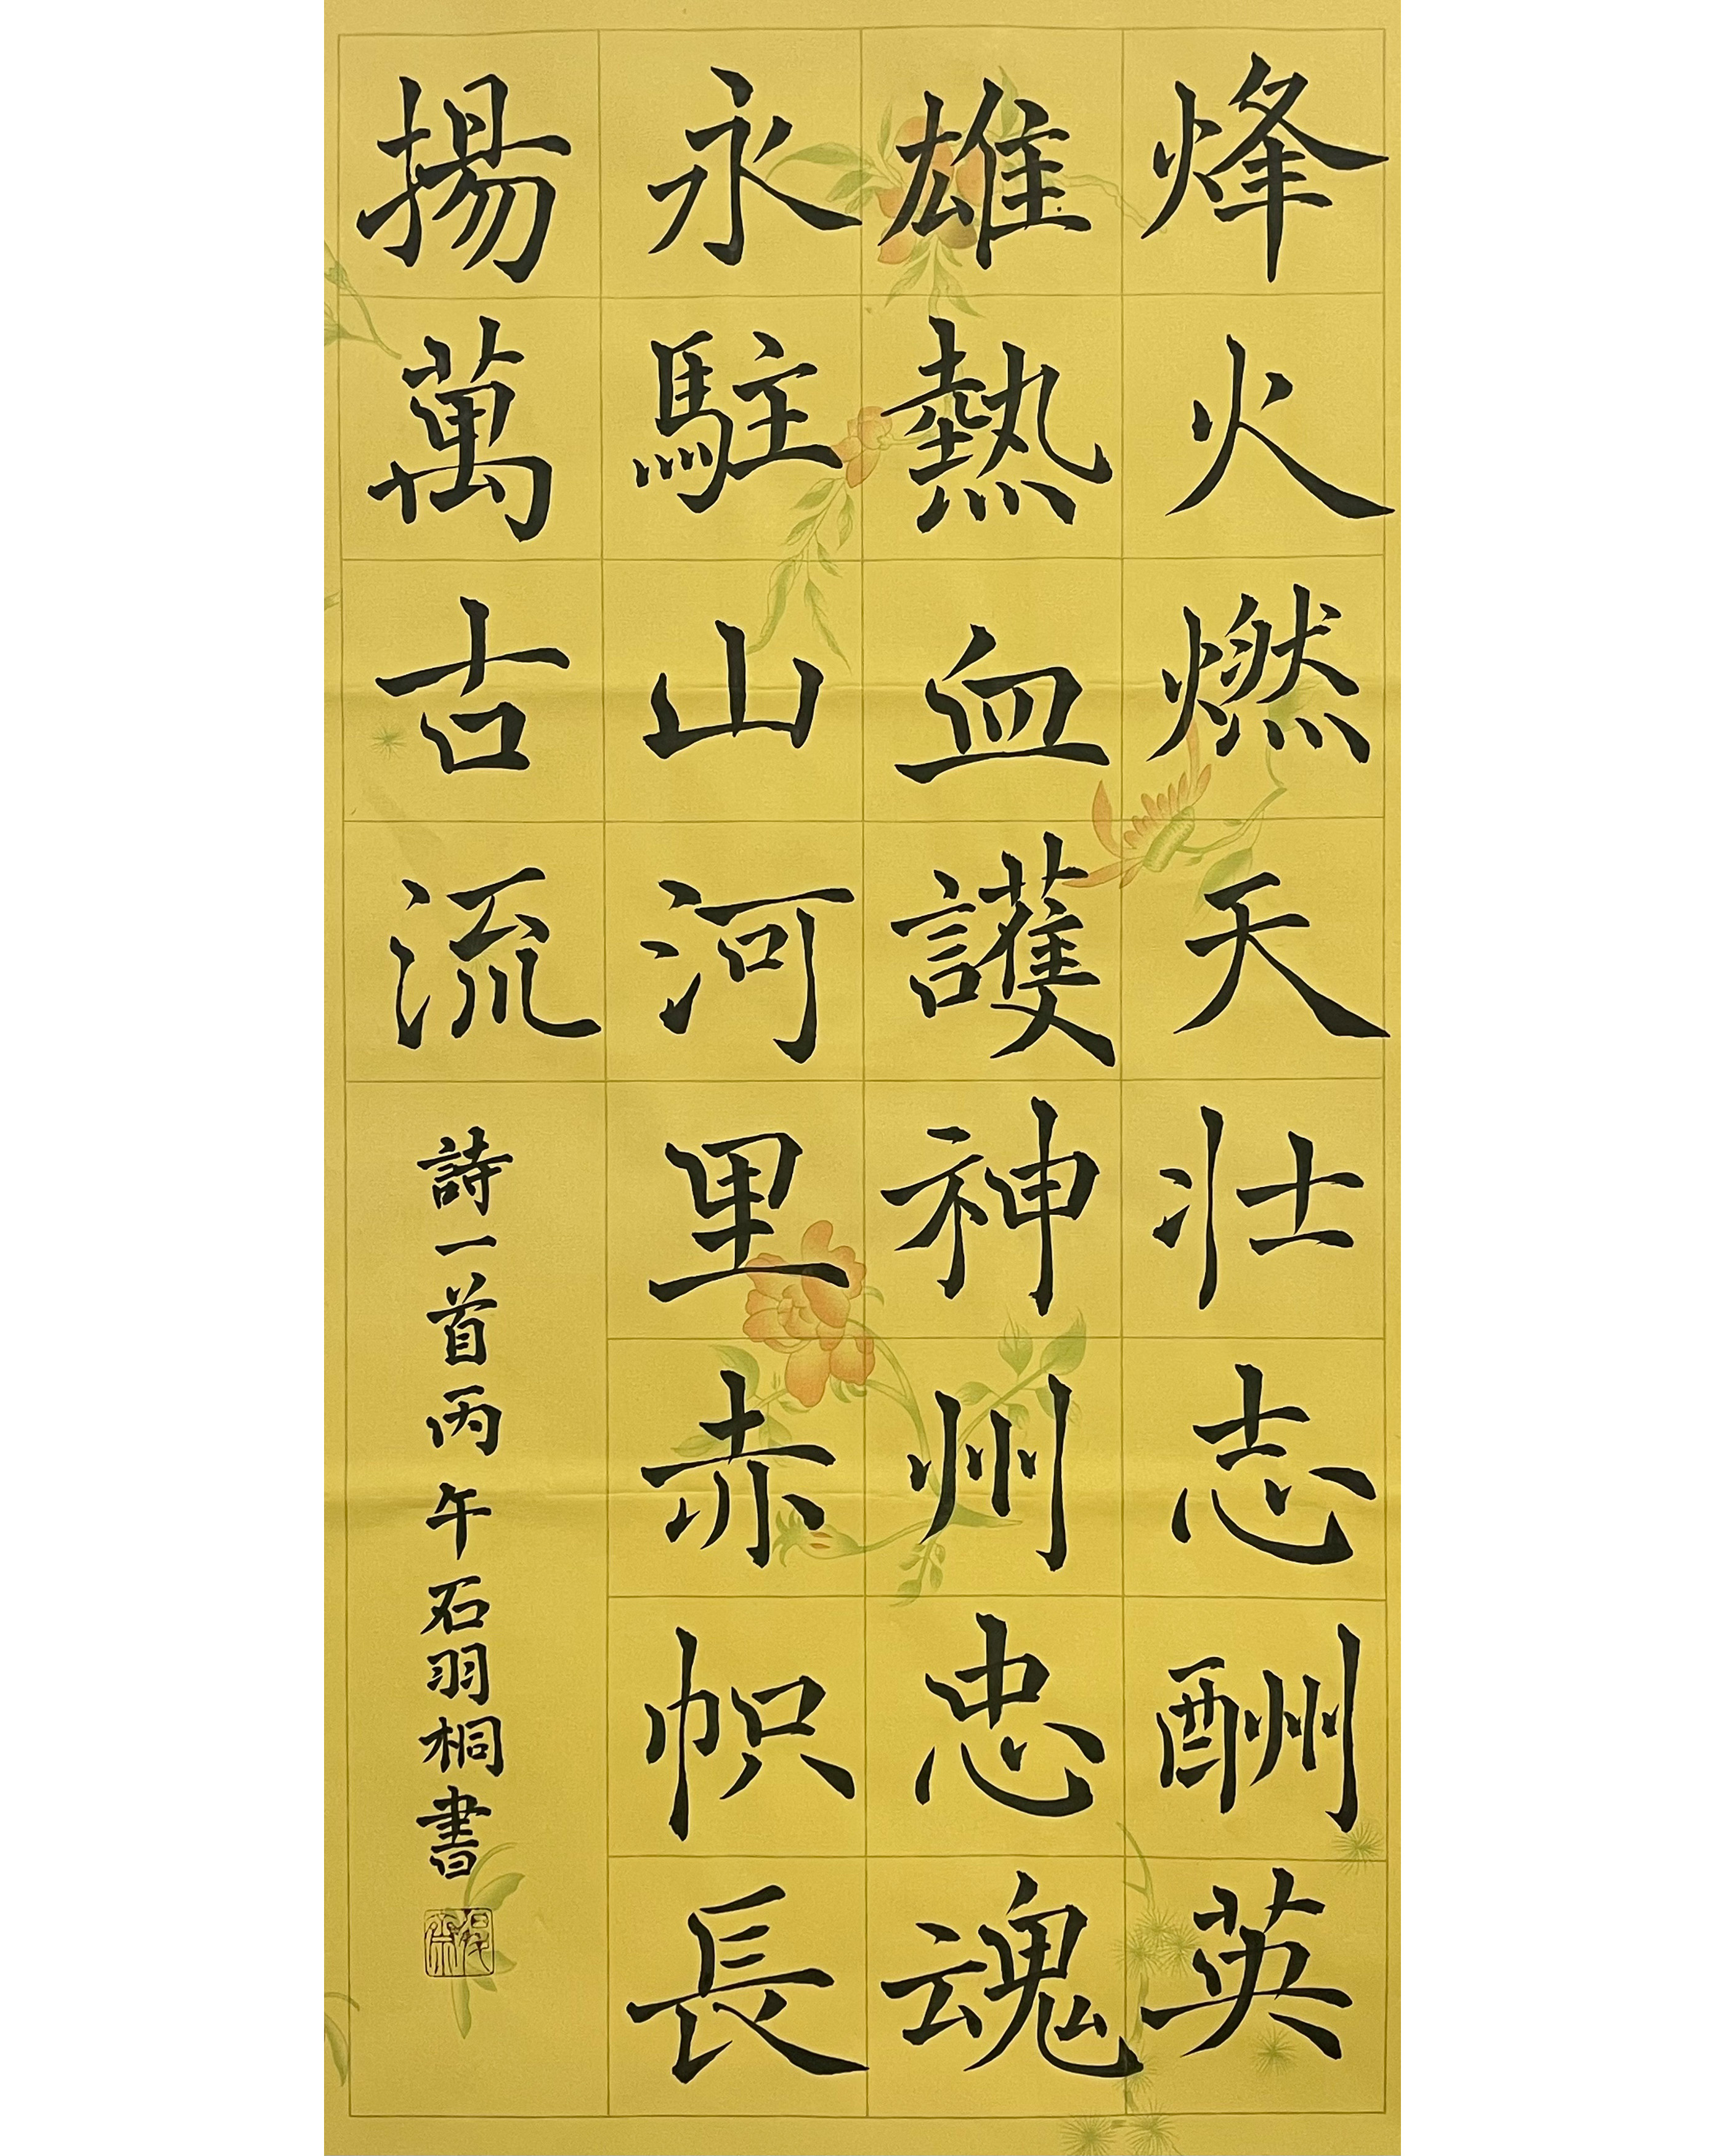 烽火燃天壮志酬英
雄熱血護神州忠魂
永駐山河里赤帜長
揚萬古流
詩一首丙午石羽桐書